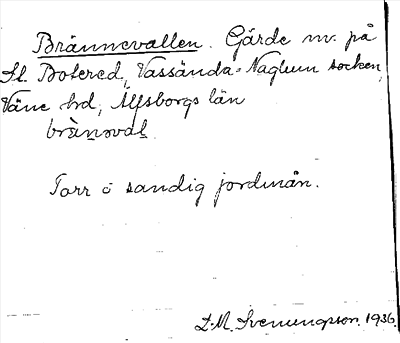 Brännevallen. Gärde nv. på
St. Botered, Vassända-Naglum socken,
Väne hd, Älfsborgs län
brä̀n̥oval̥
Torr o sandig jordmån.
D.M. Svenungsson. 1936.